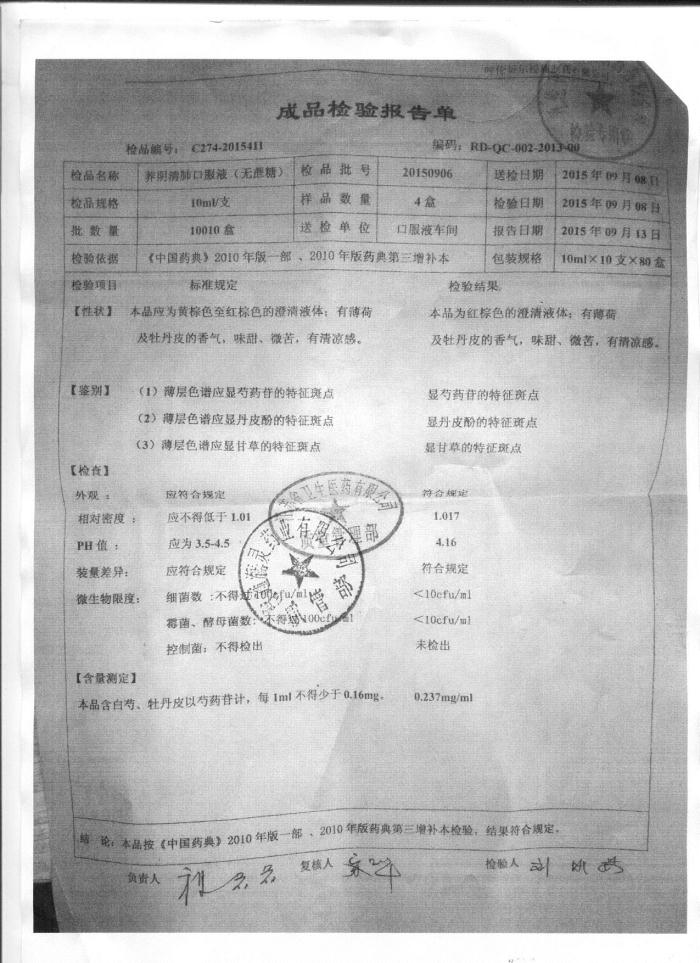 成品检验报告单
检验专用章
检品编号: C274-2015411 编码: RD-QC-002-2013-00
检品名称 养阴清肺口服液(无蔗糖) 检品批号 20150906 送检日期 2015年09月08日
检品规格 10ml/支 样品数量 4盒 检验日期 2015年09月08日
批数量 10010盒 送检单位 口服液车间 报告日期 2015年09月13日
检验依据 《中国药典》2010年版一部、2010年版药典第三增补本 包装规格 10ml×10支×80盒
检验项目 标准规定 检验结果
【性状】 本品应为黄棕色至红棕色的澄清液体;有薄荷 本品为红棕色的澄清液体;有薄荷
及牡丹皮的香气,味甜、微苦,有清凉感。 及牡丹皮的香气,味甜、微苦,有清凉感。
【鉴别】 (1)薄层色谱应显芍药苷的特征斑点 显芍药苷的特征斑点
(2)薄层色谱应显丹皮酚的特征斑点 显丹皮酚的特征斑点
(3)薄层色谱应显甘草的特征斑点 显甘草的特征斑点
【检查】
外观: 应符合规定 符合规定
相对密度: 应不得低于1.01 1.017
PH值: 应为3.5-4.5 4.16
装量差异: 应符合规定 符合规定
微生物限度: 细菌数:不得过100cfu/ml <10cfu/ml
霉菌、酵母菌数:不得过100cfu/ml <10cfu/ml
控制菌:不得检出 未检出
卫生医药有限公司
质量管理部
药业有限公司
质管部
【含量测定】
本品含白芍、牡丹皮以芍药苷计,每1ml不得少于0.16mg。 0.237mg/ml
结论:本品按《中国药典》2010年版一部、2010年版药典第三增补本检验,结果符合规定。
负责人 复核人 检验人